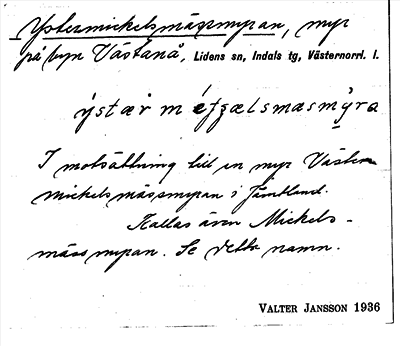 Ystermickelsmässmyran, myr
på byn Västanå, Lidens sn, Indals tg, Västernorrl. l.
ýstær mɩ́efzælsmæsmy̌ra
I motsättning till en myr Väster
mickelsmässmyran i Jämtland.
Kallas även Mickels-
mässmyran. Se detta namn.
VALTER JANSSON 1936